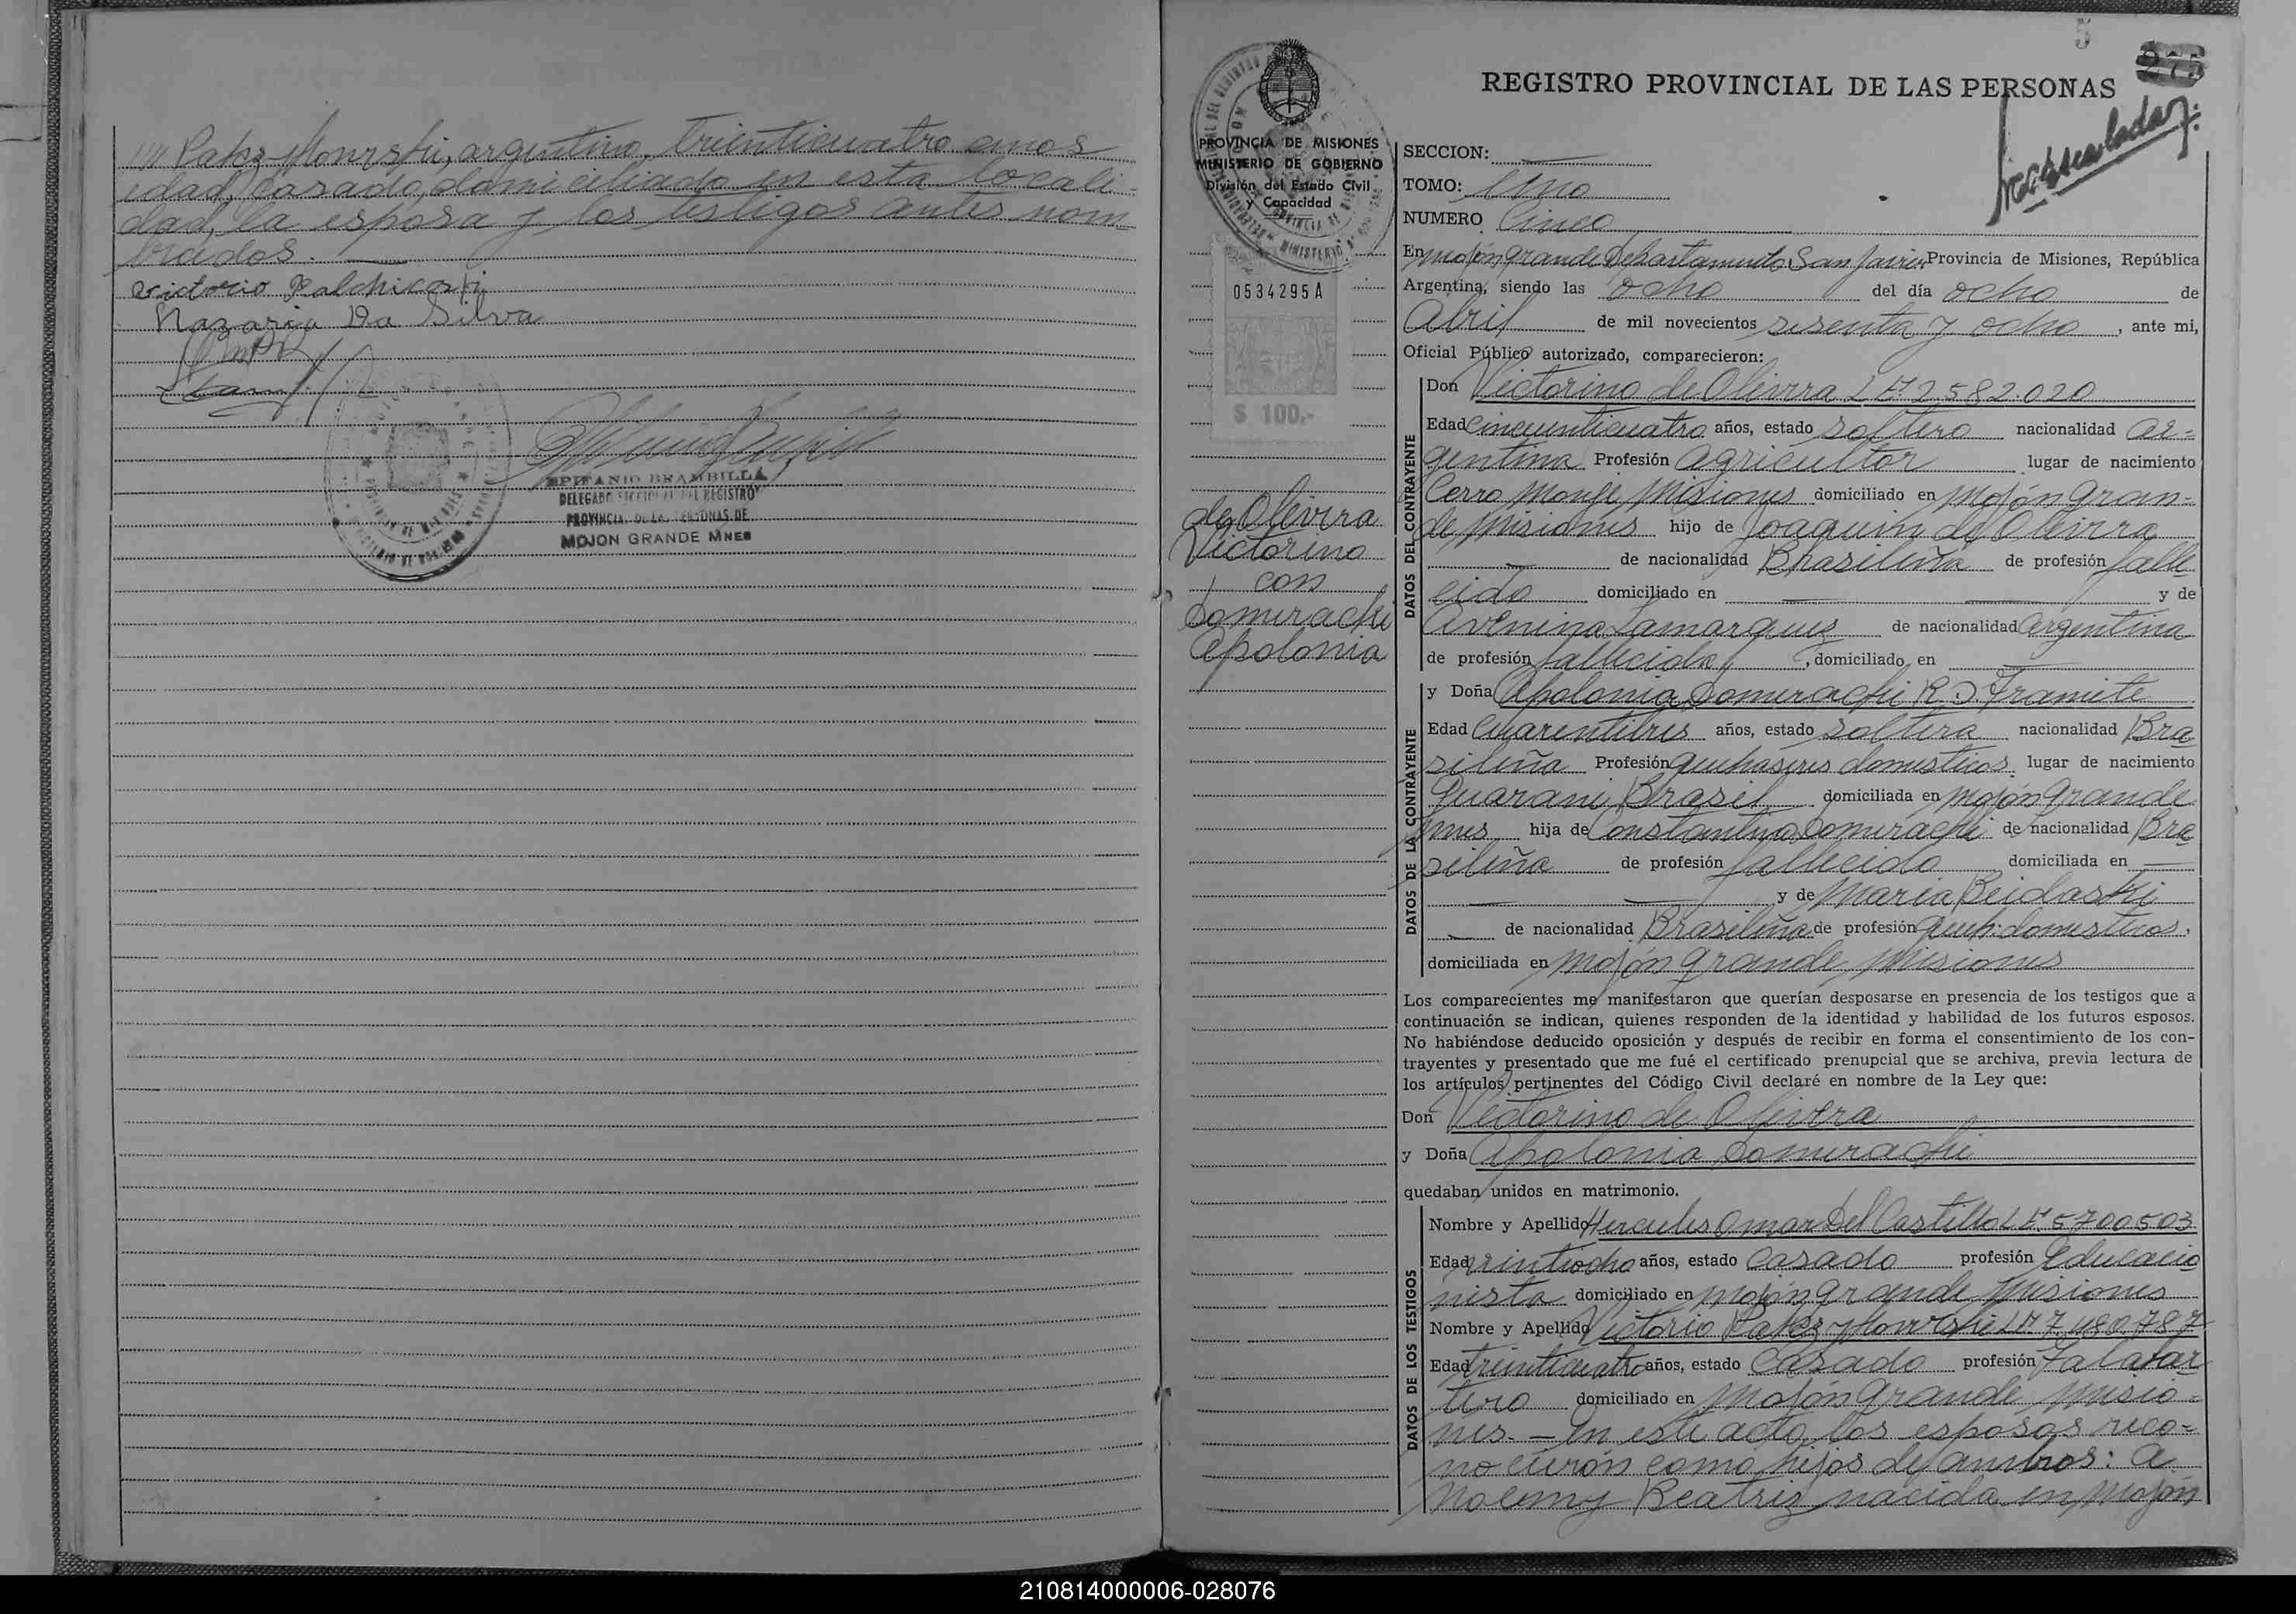 Patez Mourski, argentino, trinticuatro anos
idad, Casado, domiciliado en esta locali-
dad, la esposa y los testigos antes nom
brados.
Nazario Da Silva
EPIFANIO BRAMBILLA
DELEGADO SECCIONAL DEL REGISTRO
PROVINCIAL DE LAS PERSONAS DE
MOJON GRANDE MNES
5
275
REGISTRO PROVINCIAL DE LAS PERSONAS
PROVINCIA DE MISIONES
MINISTERIO DE GOBIERNO
División del Estado Civil
y Capacidad
0534295A
$ 100.-
de Oleivra
Victorino
con
Domerachi
Apolonia
SECCION:
TOMO: Uno
NUMERO Cinco
En Mojón grande Departamento San Javier Provincia de Misiones, República
Argentina, siendo las Ocho del día ocho de
Abril de mil novecientos sesenta y ocho, ante mi,
Oficial Público autorizado, comparecieron:
DATOS DEL CONTRAYENTE
Don Victorino de Oleivra L E. 2582.020
Edad Cincuenticuatro años, estado soltero nacionalidad ar-
gentina Profesión agricultor lugar de nacimiento
Cerro Monje Misiones domiciliado en Mojón Gran-
de Misiones hijo de Joaquin de Oleivra
de nacionalidad Brasileña de profesión falle
cido domiciliado en y de
Avenina Lamarquez de nacionalidad argentina
de profesión fallecida, domiciliado en
DATOS DE LA CONTRAYENTE
y Doña Apolonia Domerachi R.D. Tramite
Edad Cuarentitres años, estado soltera nacionalidad Bra
sileña Profesión quehaseres domesticos lugar de nacimiento
Guarani Brasil domiciliada en Mojón grande
Mnes hija de Constantino Domerachi de nacionalidad Bra
sileña de profesión fallecido domiciliada en
y de Maria Beidaski
de nacionalidad Brasileña de profesión queh. domesticos,
domiciliada en Mojón grande Misiones
Los comparecientes me manifestaron que querían desposarse en presencia de los testigos que a
continuación se indican, quienes responden de la identidad y habilidad de los futuros esposos.
No habiéndose deducido oposición y después de recibir en forma el consentimiento de los con-
trayentes y presentado que me fué el certificado prenupcial que se archiva, previa lectura de
los artículos pertinentes del Código Civil declaré en nombre de la Ley que:
Don Victorino de Oleivra
y Doña Apolonia Domerachi
quedaban unidos en matrimonio.
DATOS DE LOS TESTIGOS
Nombre y Apellido Hercules Omar Del Castillo L E 5700503
Edad vintiocho años, estado casado profesión Educacio
nista domiciliado en Mojón grande Misiones
Nombre y Apellido Victorio
Edad trinticuatro años, estado Casado profesión Talabar
tero domiciliado en Mojón Grande Misio-
nes. - En este acto los esposos reco-
nocieron como hijos de ambos: a
Noemy Beatriz nacida en Mojón
210814000006-028076